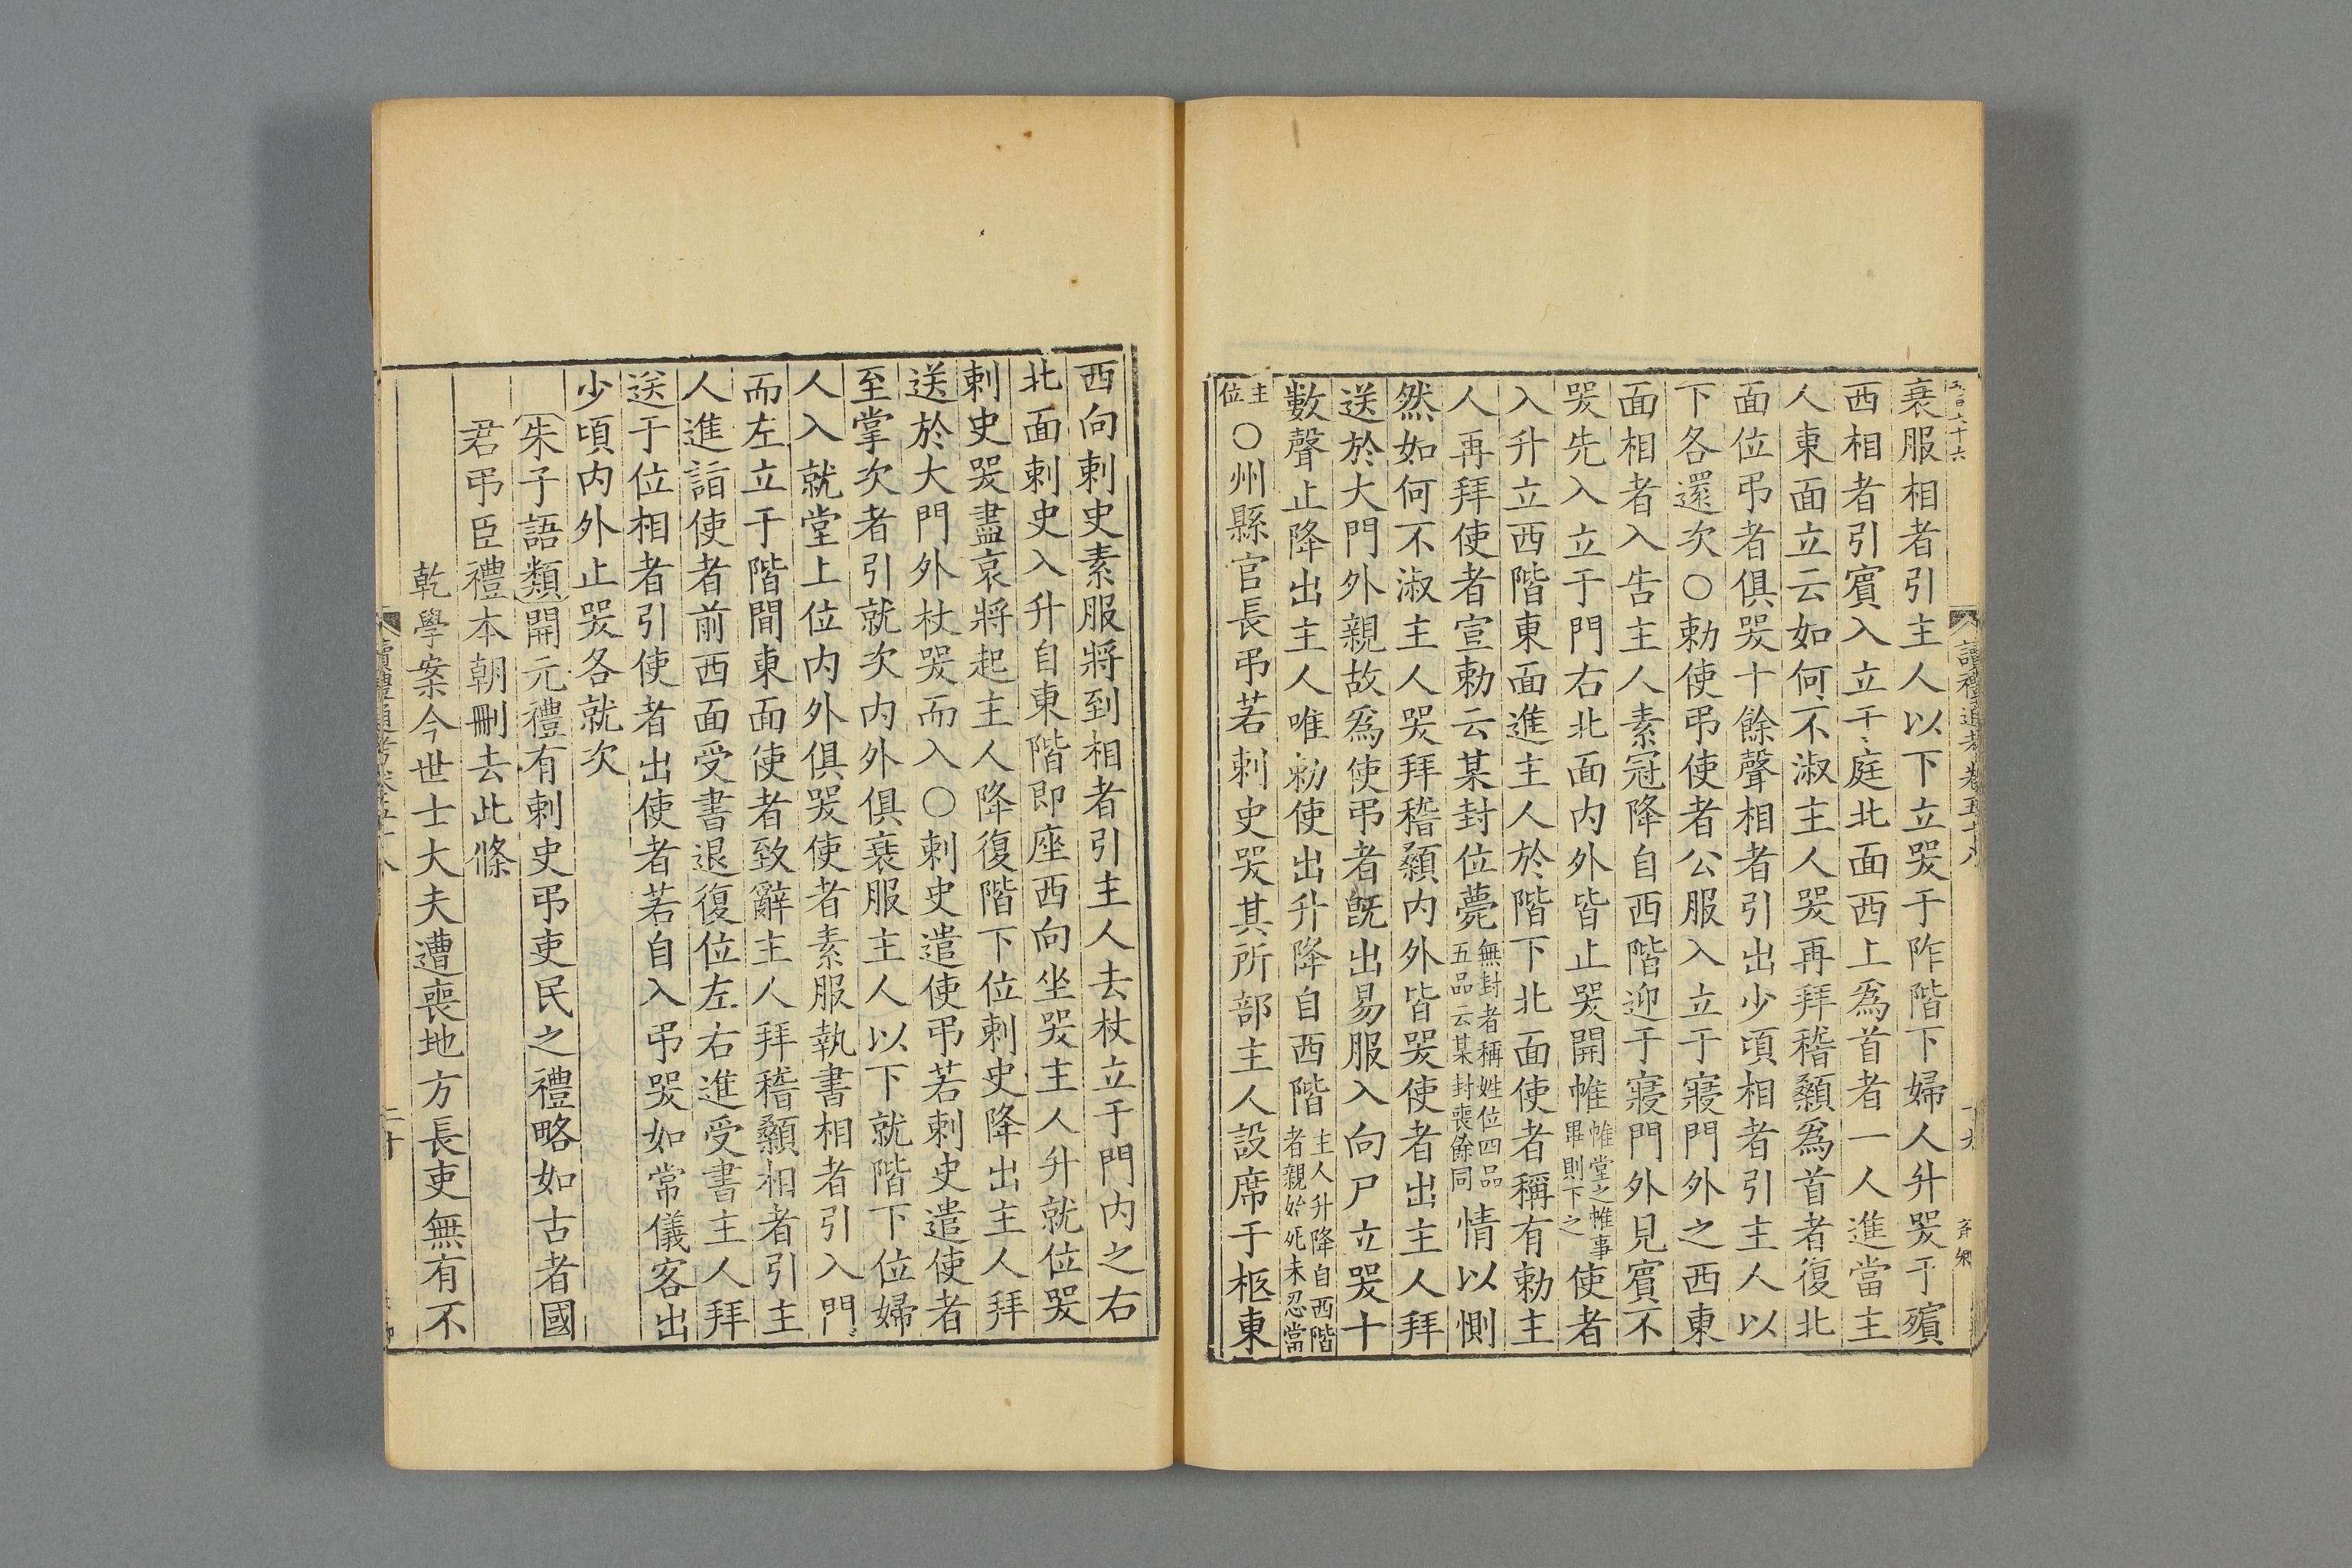 五百六十六
讀禮通考卷五十八
十九
衰服相者引主人以下立哭于阼階下婦人升哭于殯
西相者引賓入立于庭北面西上爲首者一人進當主
人東面立云如何不淑主人哭再拜稽顙爲首者復北
面位弔者俱哭十餘聲相者引出少頃相者引主人以
下各還次○勅使弔使者公服入立于寢門外之西東
面相者入告主人素冠降自西階迎于寢門外見賓不
哭先入立于門右北面內外皆止哭開帷帷堂之帷事畢則下之使者
入升立西階東面進主人於階下北面使者稱有勅主
人再拜使者宣勅云某封位薨無封者稱姓位四品五品云某封喪餘同情以惻
然如何不淑主人哭拜稽顙內外皆哭使者出主人拜
送於大門外親故爲使弔者旣出易服入向尸立哭十
數聲止降出主人唯勅使出升降自西階主人升降自西階者親始死未忍當
主位○州縣官長弔若刺史哭其所部主人設席于柩東
西向刺史素服將到相者引主人去杖立于門內之右
北面刺史入升自東階即座西向坐哭主人升就位哭
刺史哭盡哀將起主人降復階下位刺史降出主人拜
送於大門外杖哭而入○刺史遣使弔若刺史遣使者
至掌次者引就次內外俱衰服主人以下就階下位婦
人入就堂上位內外俱哭使者素服執書相者引入門
而左立于階間東面使者致辭主人拜稽顙相者引主
人進詣使者前西面受書退復位左右進受書主人拜
送于位相者引使者出使者若自入弔哭如常儀客出
少頃內外止哭各就次
朱子語類開元禮有刺史弔吏民之禮略如古者國
君弔臣禮本朝刪去此條
乾學案今世士大夫遭喪地方長吏無有不
讀禮通考卷五十八
二十